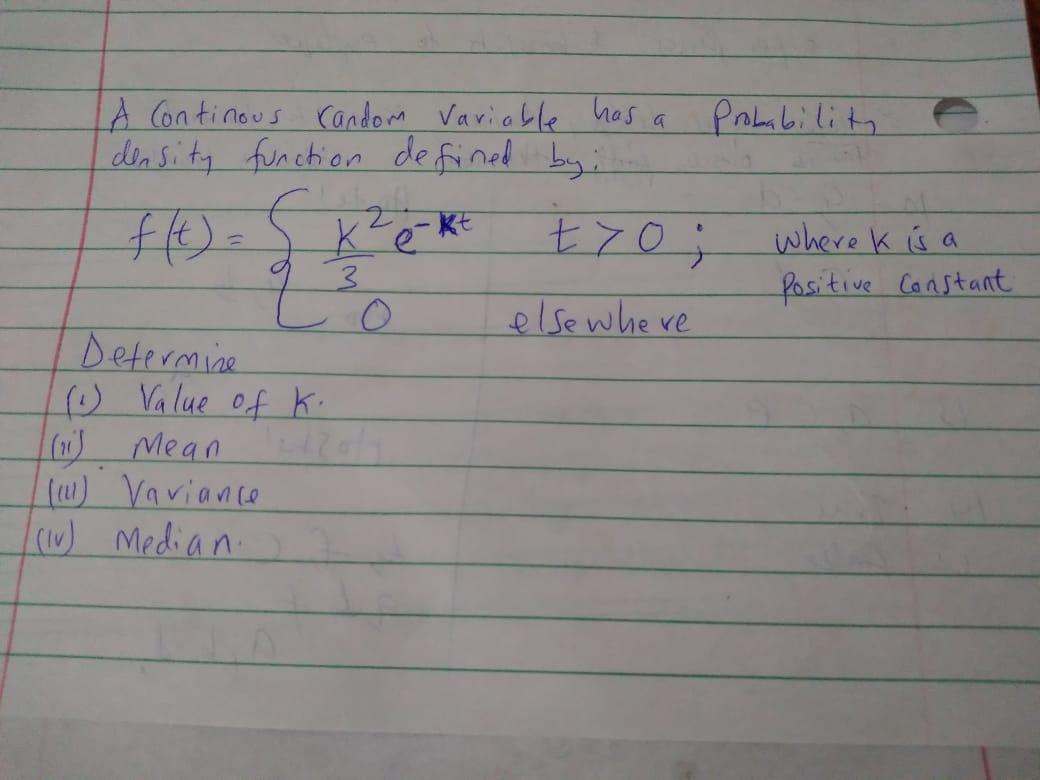 A Continous random variable has a Probability
density function defined by:
f(t) = { K²/3 e^-Kt t > 0 ; where K is a
Positive Constant
0 elsewhere
Determine
(i) Value of K.
(ii) Mean
(iii) Variance
(iv) Median.